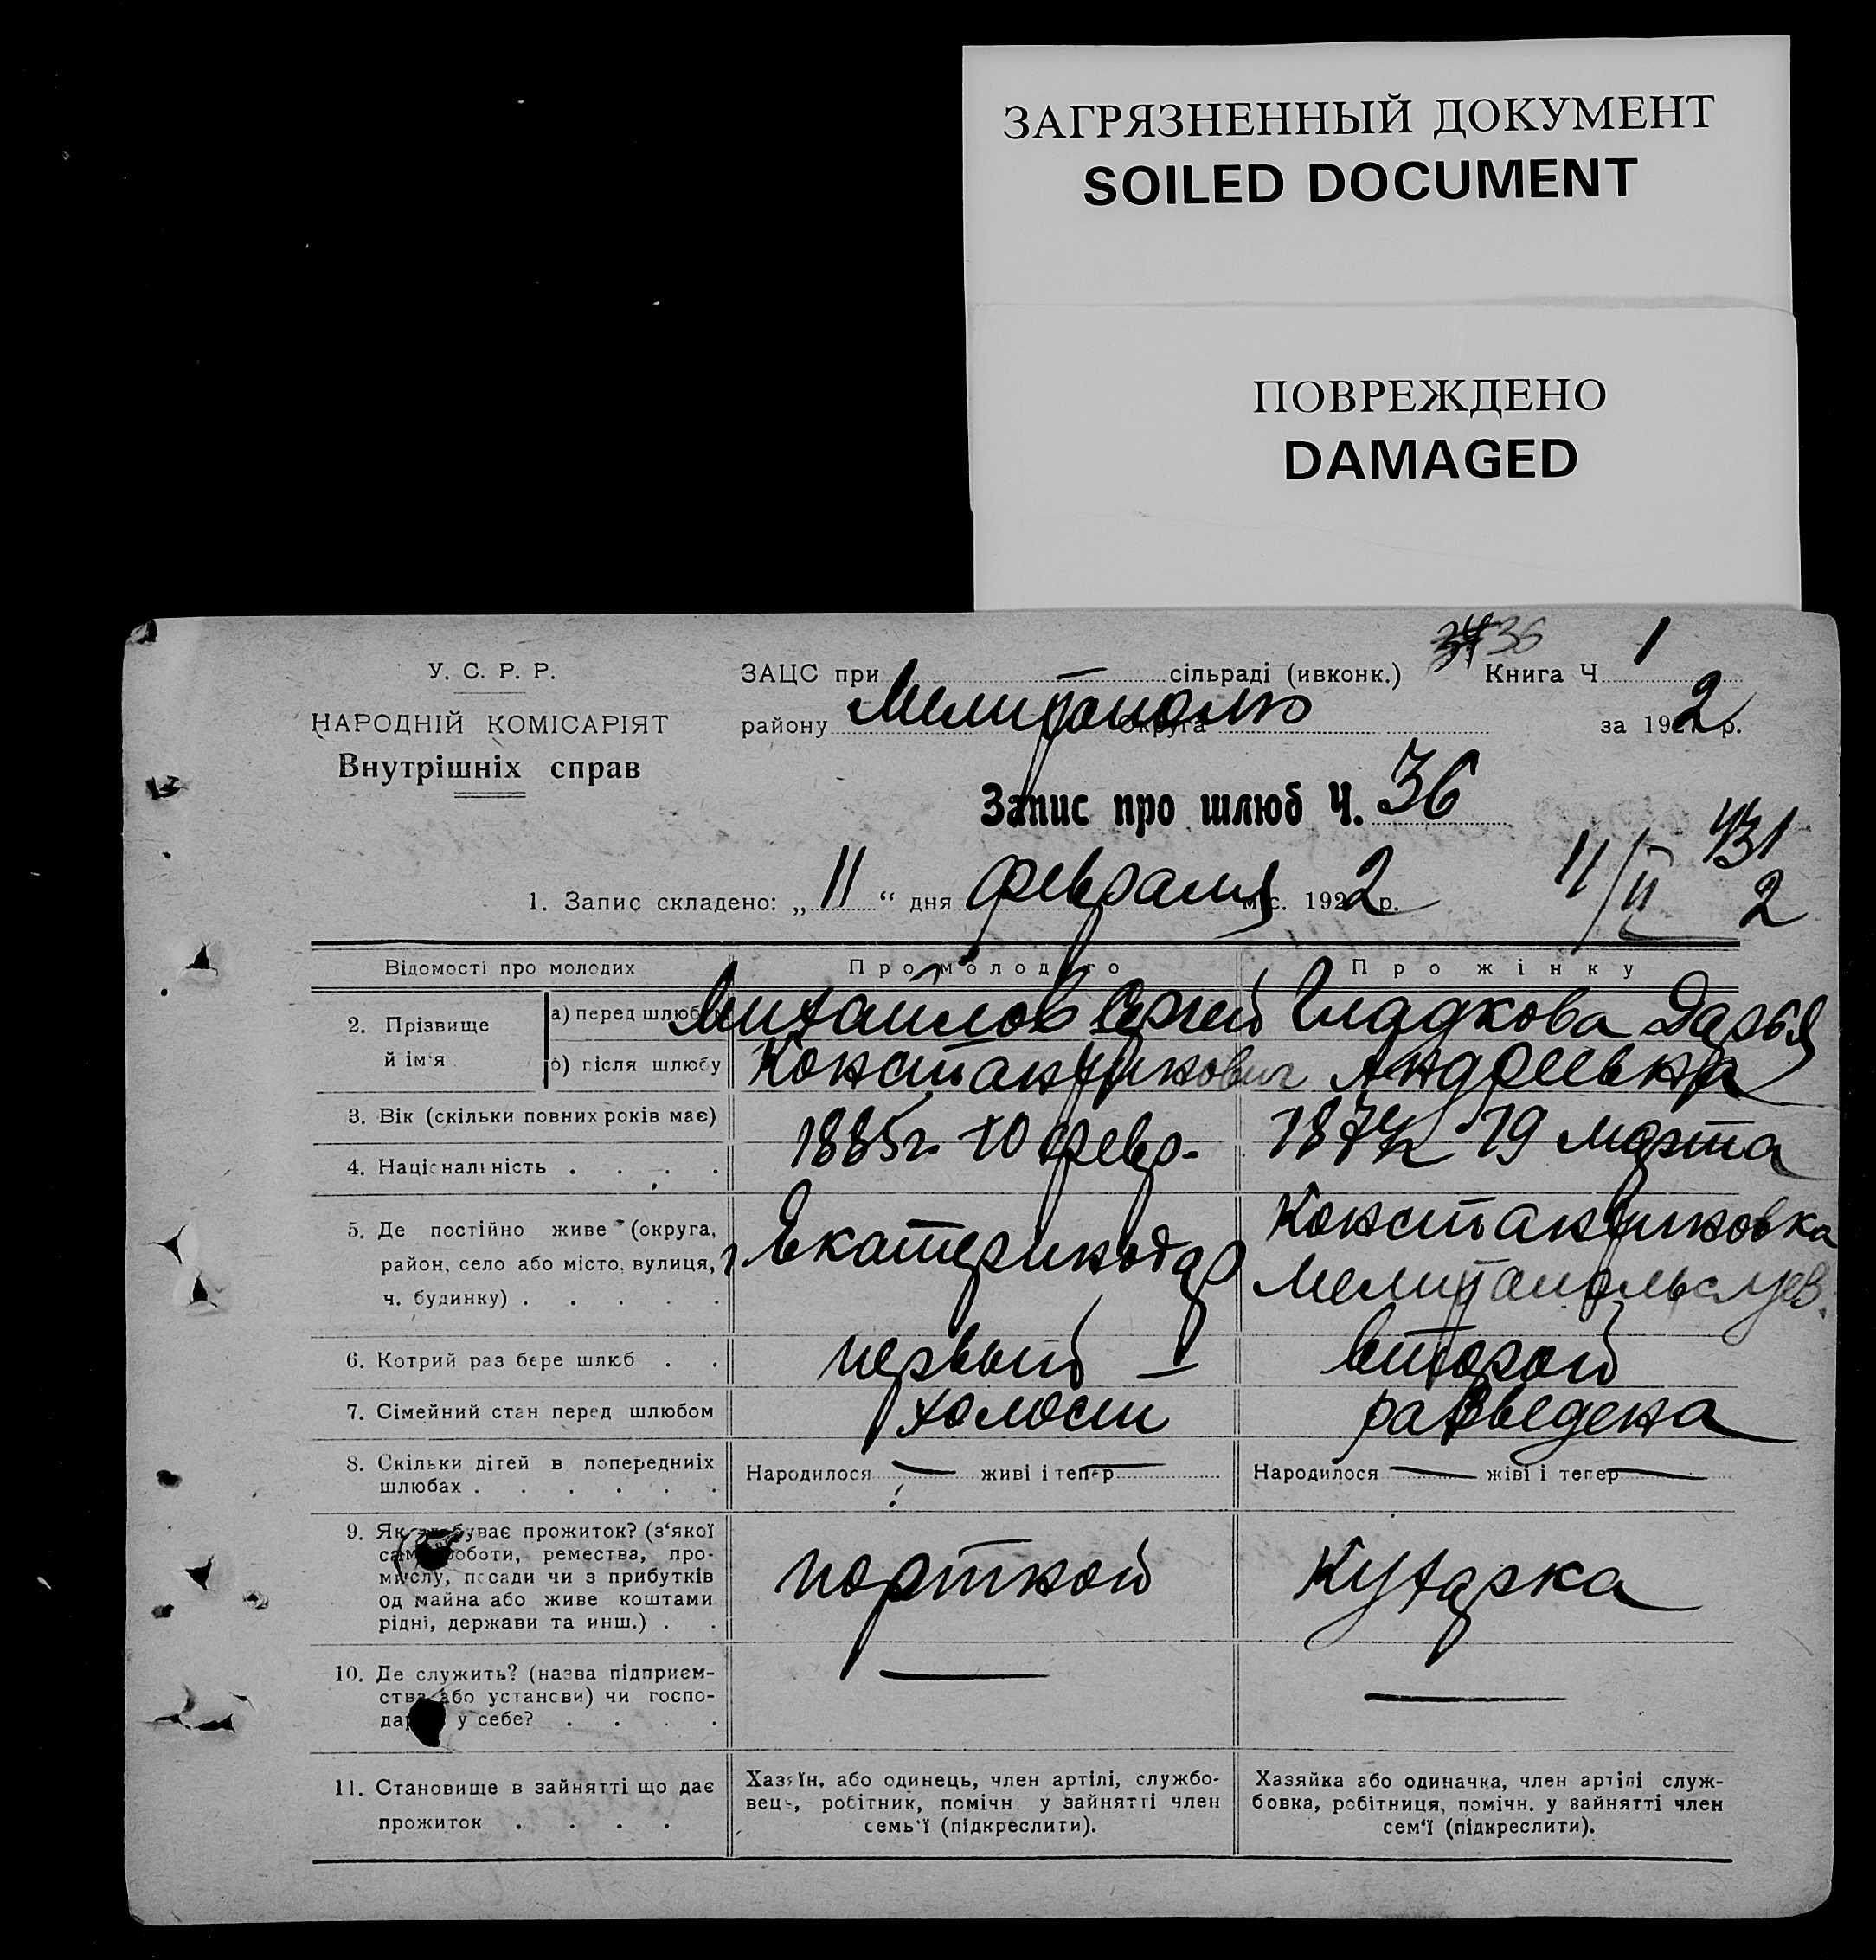 ЗАГРЯЗНЕННЫЙ ДОКУМЕНТ
SOILED DOCUMENT
ПОВРЕЖДЕНО
DAMAGED
У. С. Р. Р.
НАРОДНІЙ КОМІСАРІЯТ
Внутрішніх справ
36
ЗАЦС при сільраді (ивконк.) Книга Ч 1
району Мелитополь округа за 1922 р.
Запис про шлюб Ч. 36
1. Запис складено: „11“ дня февраля міс. 1922 р.
11/II 2
Відомості про молодих Про молодого Про жінку
2. Прізвище й ім'я
а) перед шлюбом Михайлов Сергей Гладкова Дарья
б) після шлюбу Константинович Андреевна
3. Вік (скільки повних років має) 1885г. 10 февр. 1874 19 марта
4. Національність . . . .
5. Де постійно живе (округа, г. Екатеринодар Константиновка
район, село або місто, вулиця, Мелитопольс
ч. будинку) . . . . .
6. Котрий раз бере шлюб . . первый — второй
7. Сімейний стан перед шлюбом холост разведена
8. Скільки дітей в попередніх Народилося — живі і тепер — Народилося — жіві і тепер —
шлюбах . . . . . .
9. Як здобуває прожиток? (з'якої
саме роботи, ремества, про-
мислу, посади чи з прибутків портной Кухарка
од майна або живе коштами
рідні, держави та инш.) . .
10. Де служить? (назва підприєм- — —
ства або установи) чи госпо-
дарює у себе? . . . .
11. Становище в зайнятті що дає
прожиток . . . .
Хазяїн, або одинець, член артілі, службо-
вець, робітник, помічн. у зайнятті член
семь'ї (підкреслити).
Хазяйка або одиначка, член артілі служ-
бовка, робітниця, помічн. у зайнятті член
сем'ї (підкреслити).